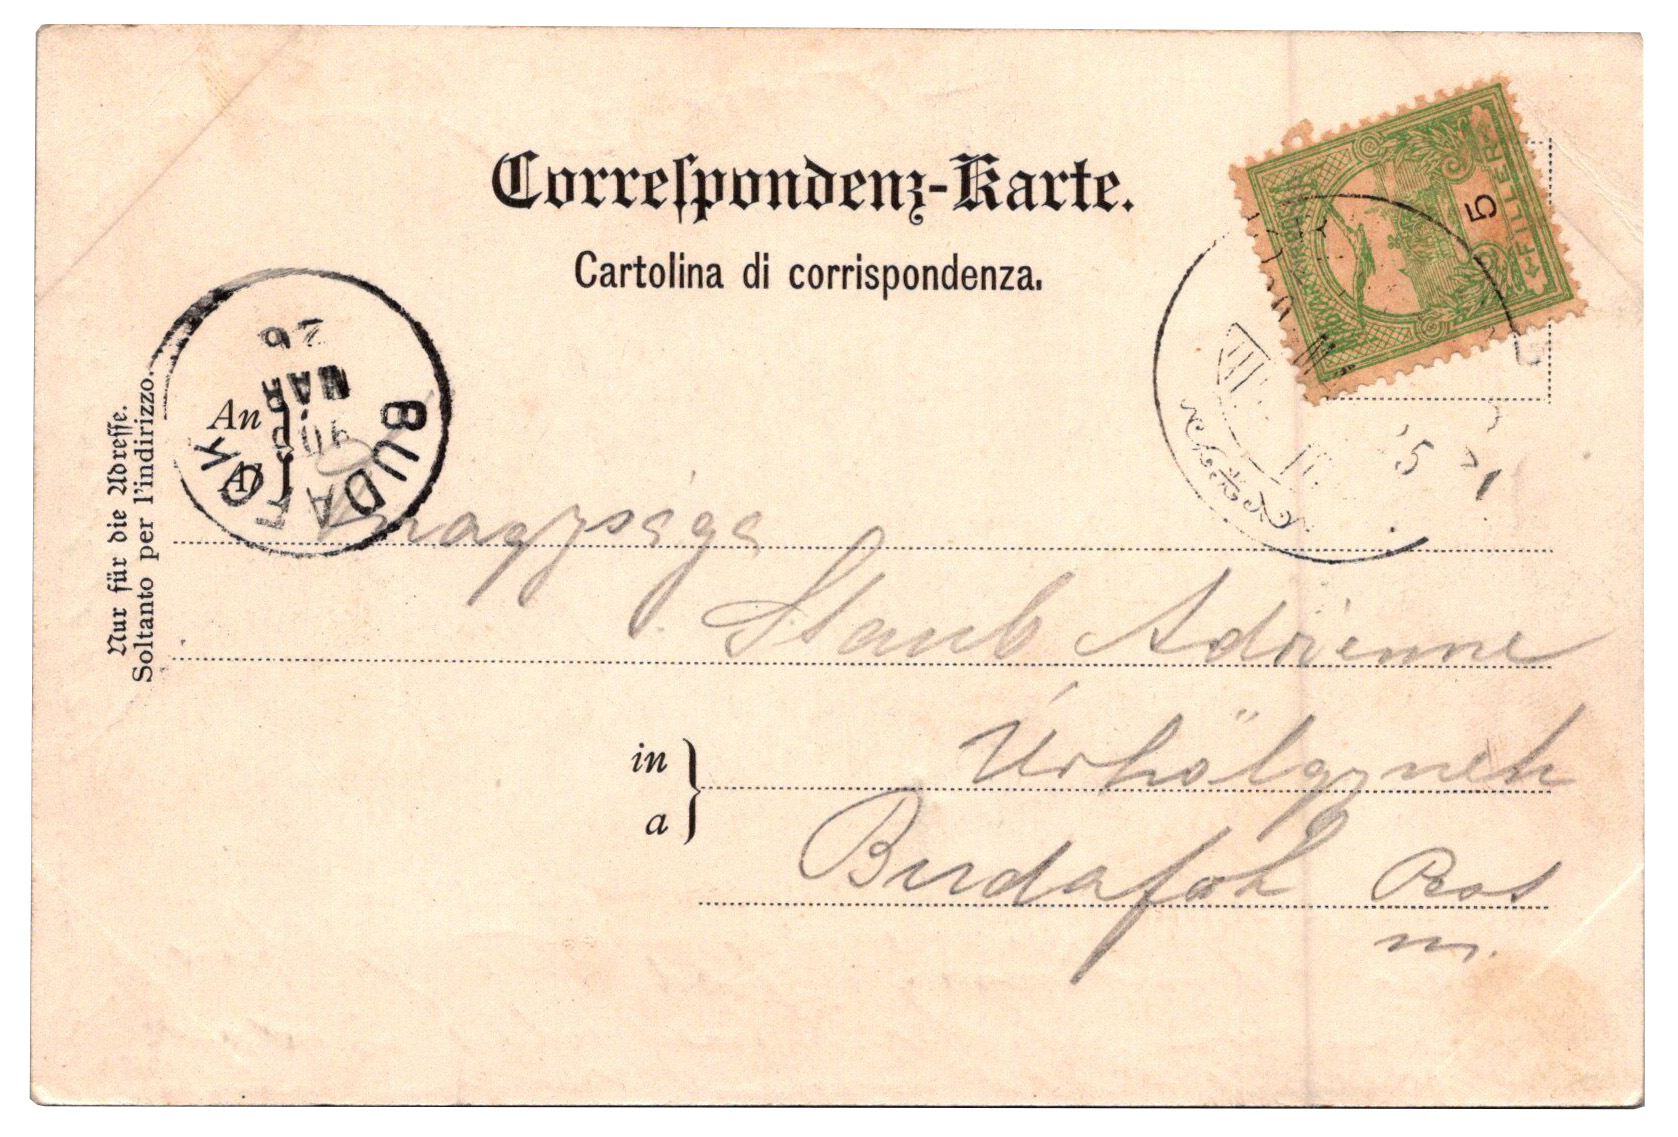 Correspondenz-Karte.
Cartolina di corrispondenza.
5
FILLÉR
BUDAFOK
26
MAR
Nur für die Adresse.
Soltanto per l'indirizzo.
An
Al
nagysága
Staub Adrienne
Úrhölgynek
in
a
Budafok
Pest
m.